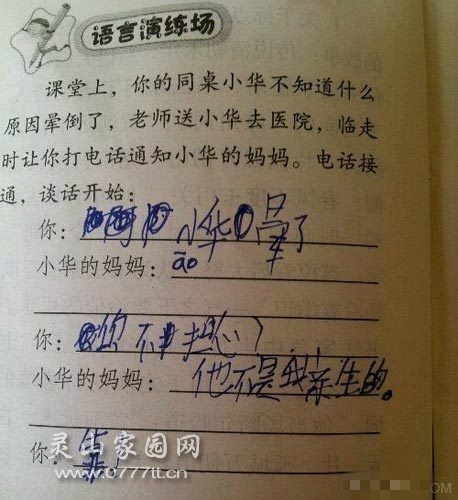 语言演练场
课堂上,你的同桌小华不知道什么
原因晕倒了,老师送小华去医院,临走
时让你打电话通知小华的妈妈。电话接
通,谈话开始:
你: 小华晕了
小华的妈妈: āo
你: 你不担心?
小华的妈妈: 他不是我亲生的。
你:
灵山家园网
www.0777tt.cn